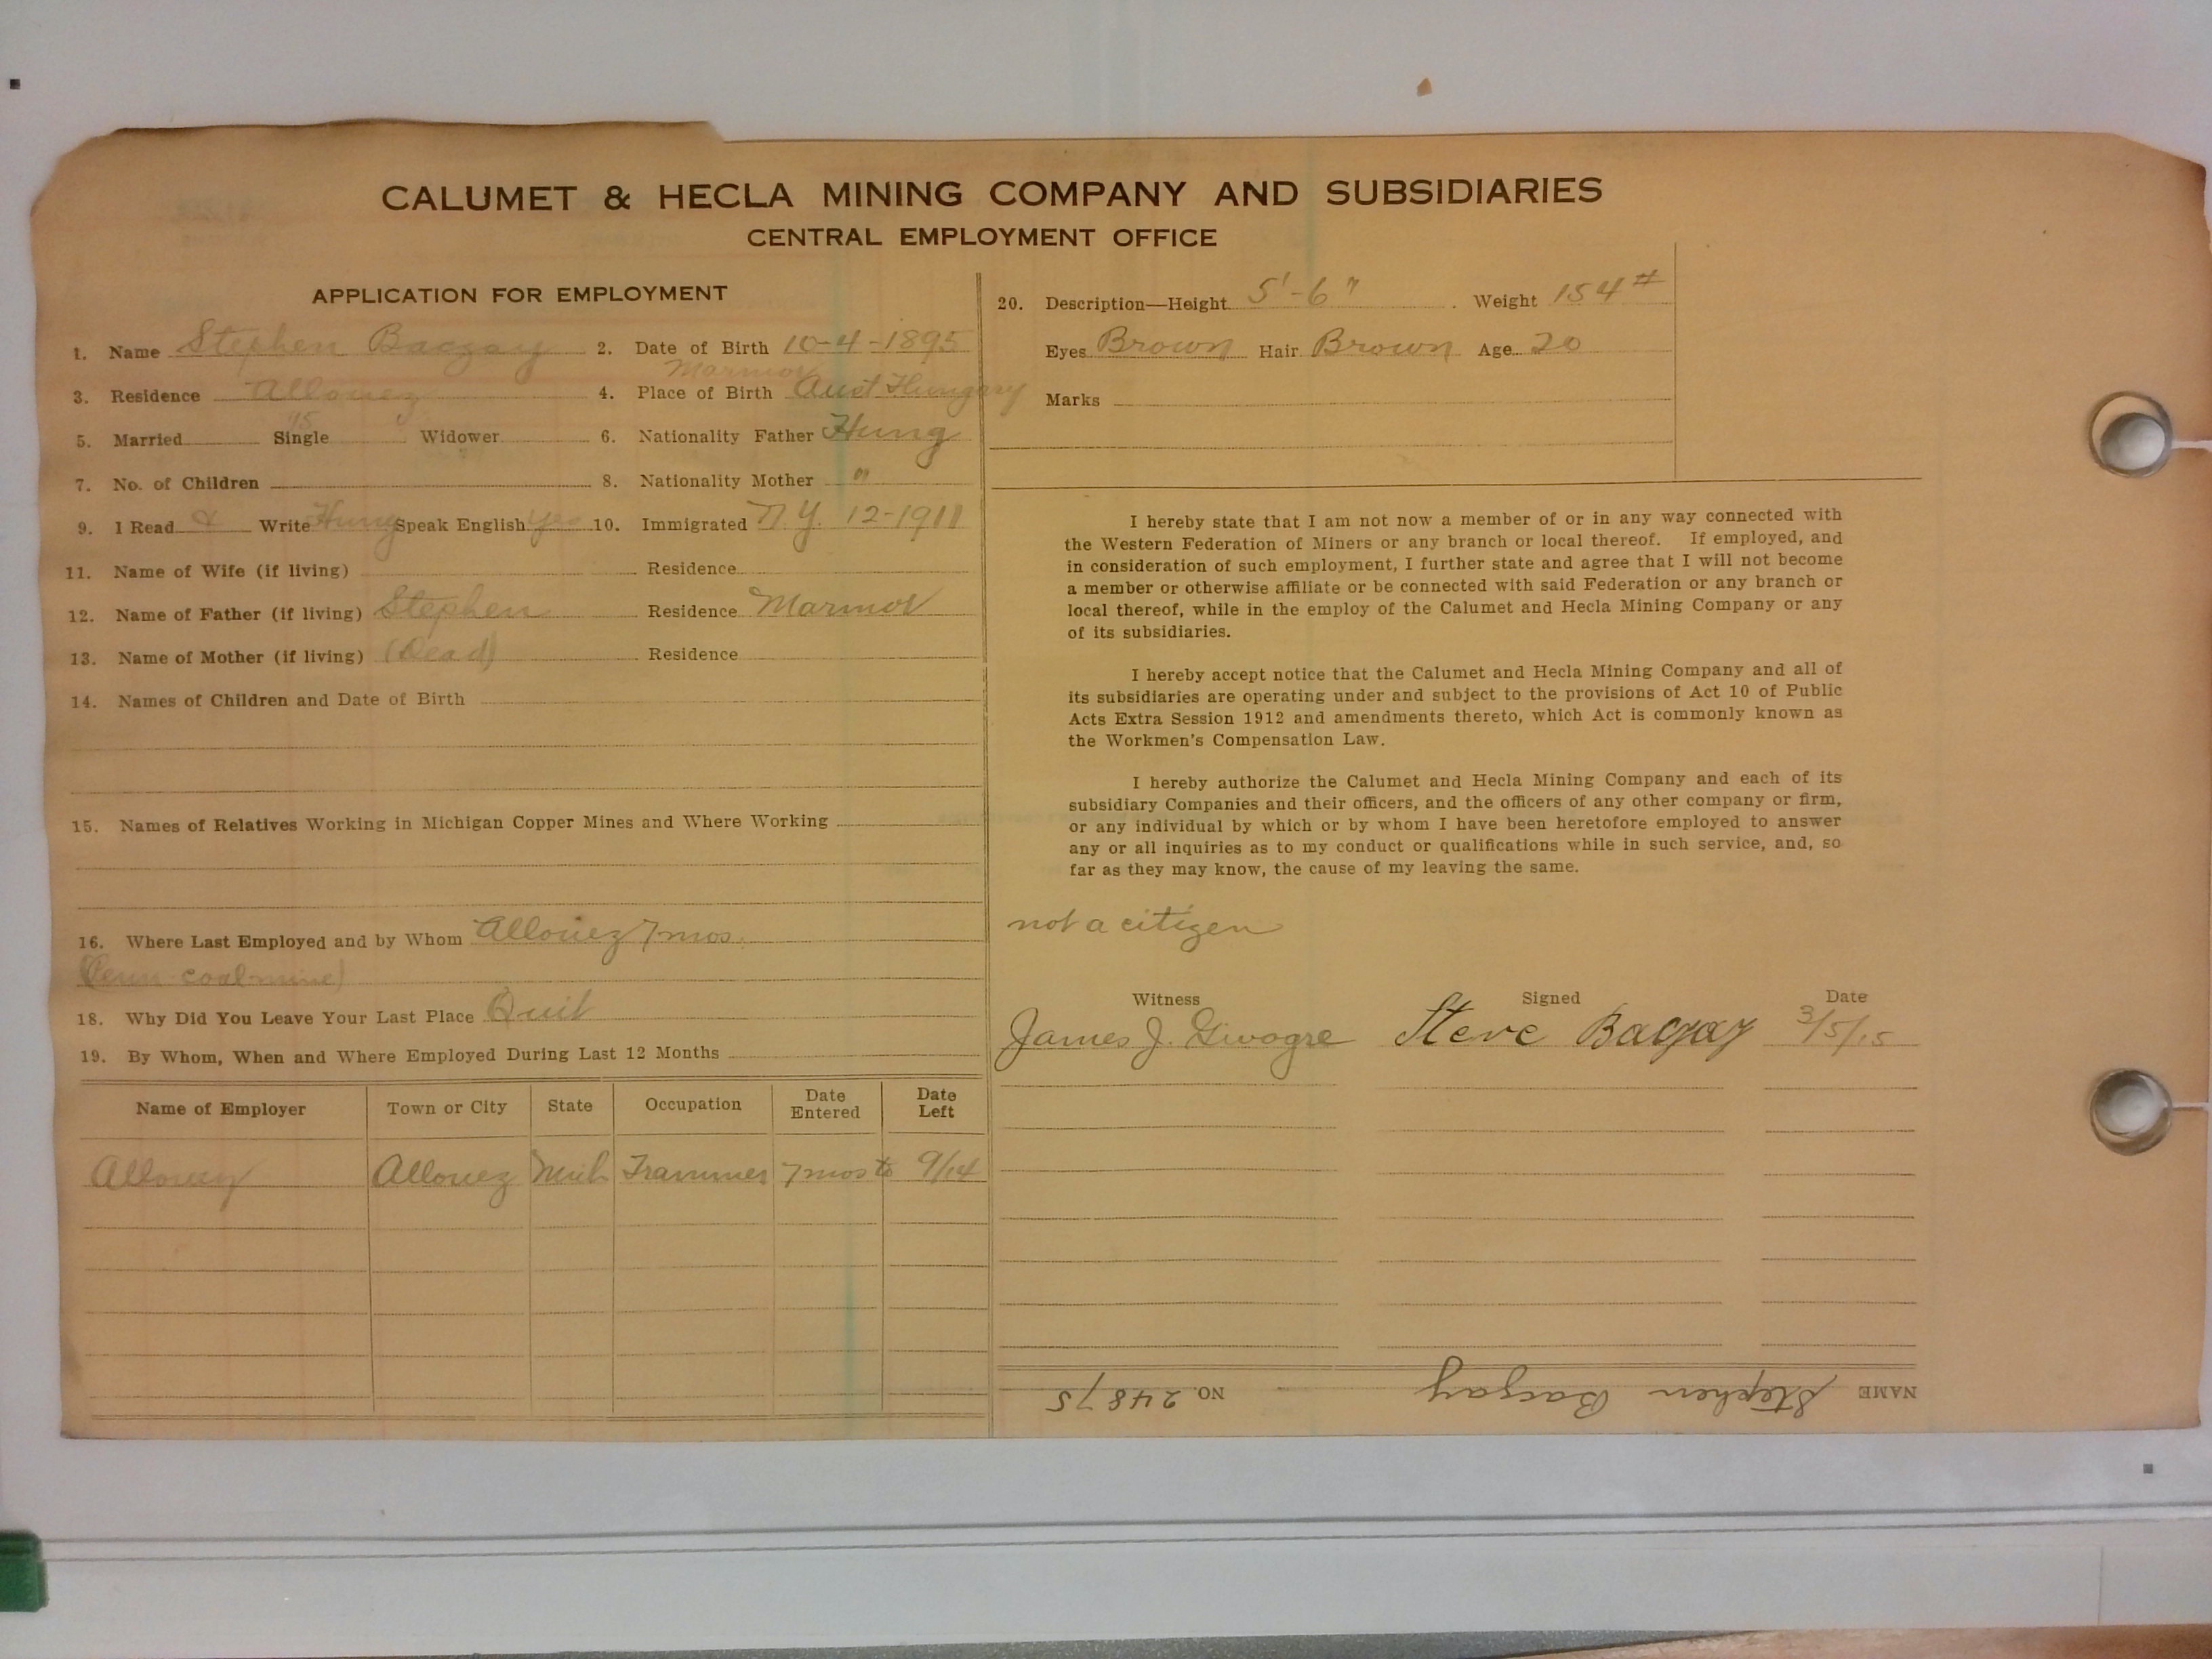 CALUMET & HECLA MINING COMPANY AND SUBSIDIARIES
CENTRAL EMPLOYMENT OFFICE
APPLICATION FOR EMPLOYMENT
1. Name Stephen Baczay 2. Date of Birth 10-4-1895
Marmor
3. Residence Allouez 4. Place of Birth Aust Hungary
5. Married Single Widower 6. Nationality Father Hung
7. No. of Children 8. Nationality Mother "
9. I Read & Write Hung Speak English yes 10. Immigrated N.Y. 12-1911
11. Name of Wife (if living) Residence
12. Name of Father (if living) Stephen Residence Marmor
13. Name of Mother (if living) (Dead) Residence
14. Names of Children and Date of Birth
15. Names of Relatives Working in Michigan Copper Mines and Where Working
16. Where Last Employed and by Whom Allouez 7 mos.
(Penn coal mine)
18. Why Did You Leave Your Last Place Quit
19. By Whom, When and Where Employed During Last 12 Months
Name of Employer Town or City State Occupation Date Entered Date Left
Allouez Allouez Mich Trammer 7 mos to 9/14
20. Description—Height 5'-6" Weight 154#
Eyes Brown Hair Brown Age 20
Marks
I hereby state that I am not now a member of or in any way connected with
the Western Federation of Miners or any branch or local thereof. If employed, and
in consideration of such employment, I further state and agree that I will not become
a member or otherwise affiliate or be connected with said Federation or any branch or
local thereof, while in the employ of the Calumet and Hecla Mining Company or any
of its subsidiaries.
I hereby accept notice that the Calumet and Hecla Mining Company and all of
its subsidiaries are operating under and subject to the provisions of Act 10 of Public
Acts Extra Session 1912 and amendments thereto, which Act is commonly known as
the Workmen's Compensation Law.
I hereby authorize the Calumet and Hecla Mining Company and each of its
subsidiary Companies and their officers, and the officers of any other company or firm,
or any individual by which or by whom I have been heretofore employed to answer
any or all inquiries as to my conduct or qualifications while in such service, and, so
far as they may know, the cause of my leaving the same.
not a citizen
Witness Signed Date
James J. Steve Baczay 3/5/15
NAME Stephen Baczay NO. 24875